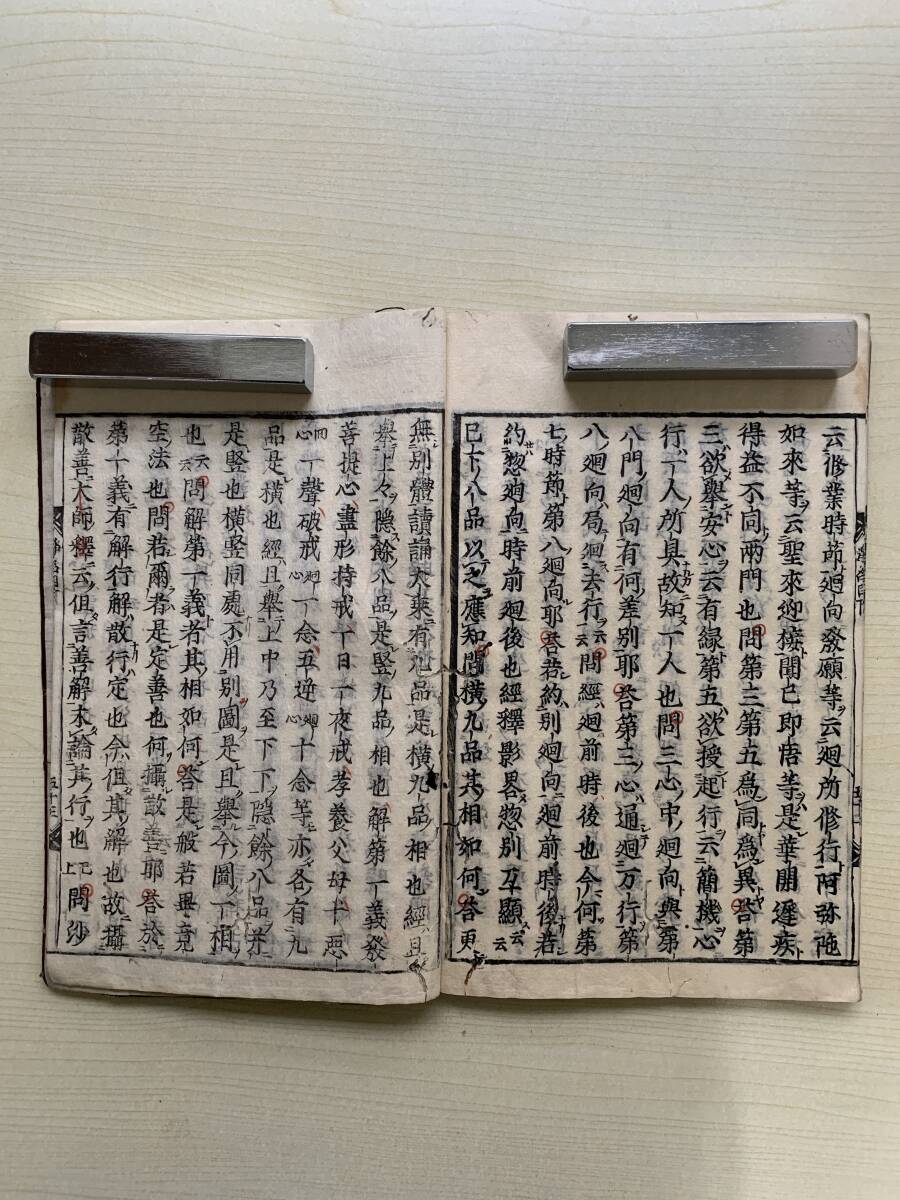 云修業時節廻向發願等云廻所修行阿弥陁
如來等云聖來迎接開已即悟等是華開遲疾
得益不同兩門也問第三第五爲同爲異答第
三欲擧安心云有縁第五欲授起行云簡機心
行一人所具故知一人也問三心中廻向與第
八門廻向有何差別耶答第三心通万行第
八廻向局去行云問經廻前時後也今何第
七時節第八廻向耶答若約別廻向廻前時後若
約惣廻向時前廻後也經釋影畧惣別互顯云
已下八品以之應知問横九品其相如何答更
無別體讀誦大乘有九品是横九品相也經且
擧上々隱餘八品是竪九品相也解第一義發
菩提心盡形持戒一日一夜戒孝養父母十惡
一聲破戒一念五逆十念等亦各有九
品是横也經且擧上中乃至下下隱餘八品并
是竪也横竪同處不用別圖是且擧今圖一相
也云問解第一義者其相如何答是般若畢竟
空法也問若爾者是定善也何攝散善耶答於
第一義有解行解散行定也今但其解也故攝
散善大師釋云但言善解未論其行也已上問沙